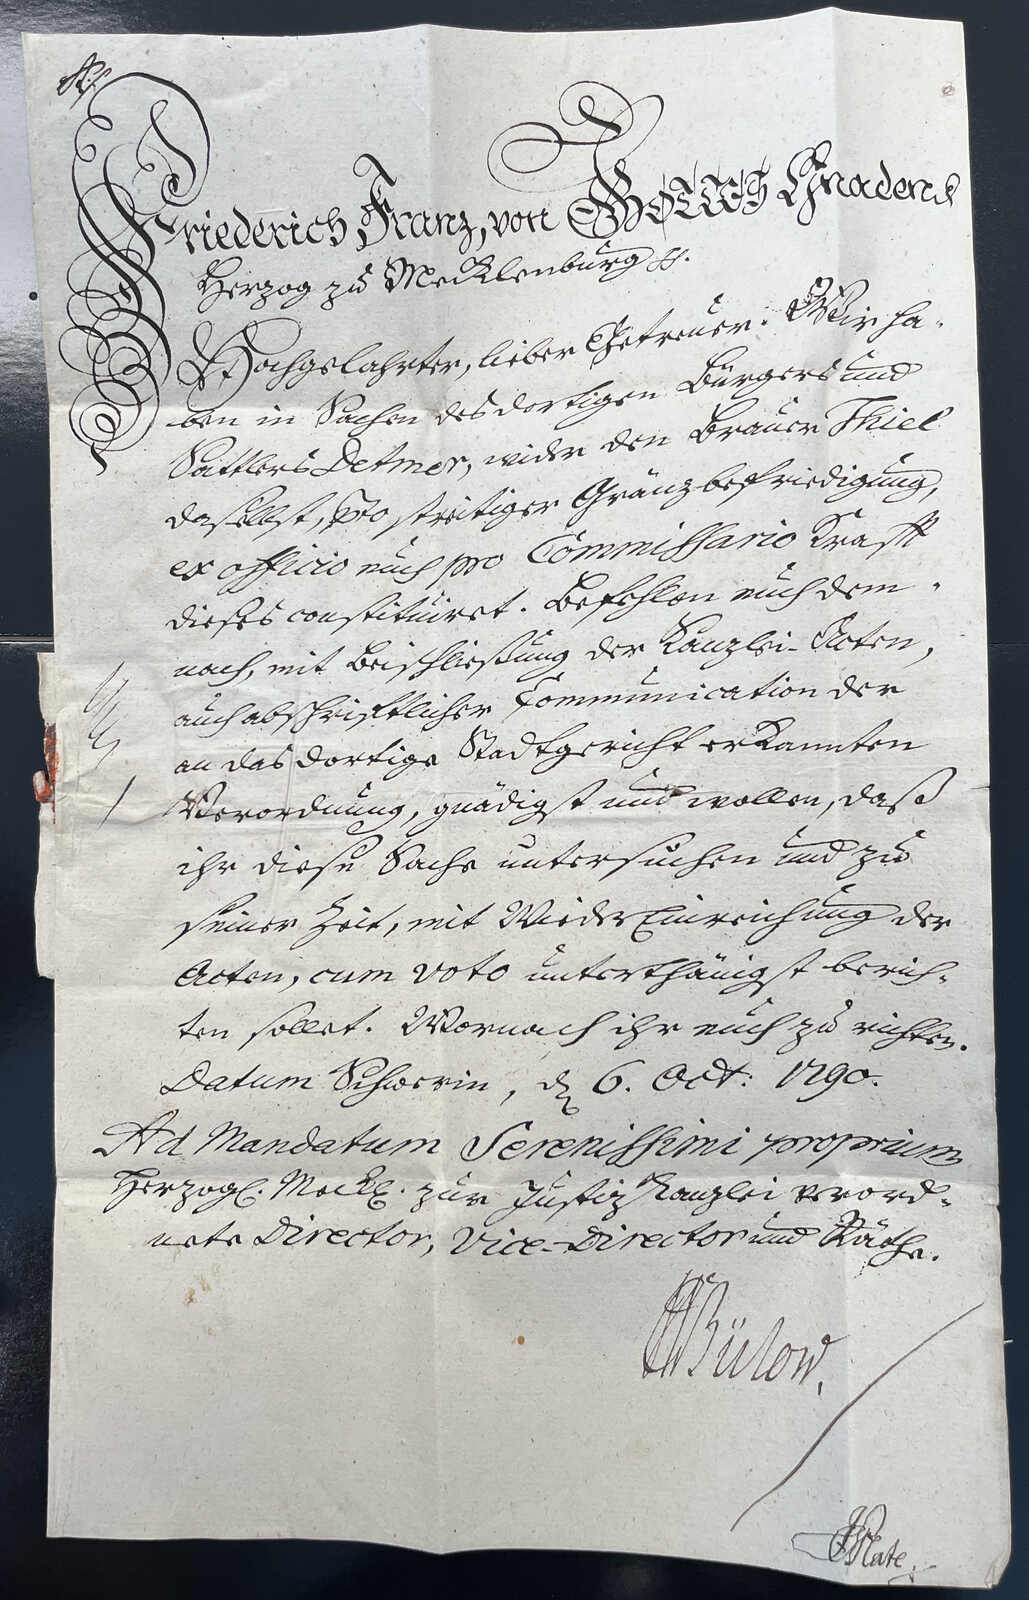 Friederich Franz, von GOTTES Gnaden
Herzog zu Mecklenburg p.
Hochgelahrter, lieber Getreuer. Wir ha-
ben in Sachen des dortigen Bürgers und
Sattlers Detmer, wider den Brauer Thiel
daselbst, pto streitiger Gränzbefriedigung,
ex officio euch pro Commissario Krafft
dieses constituiret. Befehlen euch dem-
nach, mit Beischließung der Kanzlei-Acten,
auch abschriftlicher Communication der
an das dortige Stadtgericht erkannten
Verordnung, gnädigst und wollen, daß
ihr diese Sache untersuchen und zu
seiner Zeit, mit WiederEinreichung der
Acten, cum voto unterthänigst berich-
ten sollet. Wornach ihr euch zu richten.
Datum Schwerin, d 6. Oct: 1790.
Ad Mandatum Serenissimi proprium
Herzogl. Meckl. zur Justiz Kanzlei verord-
nete Director, Vice-Director und Räthe.
Bülow.